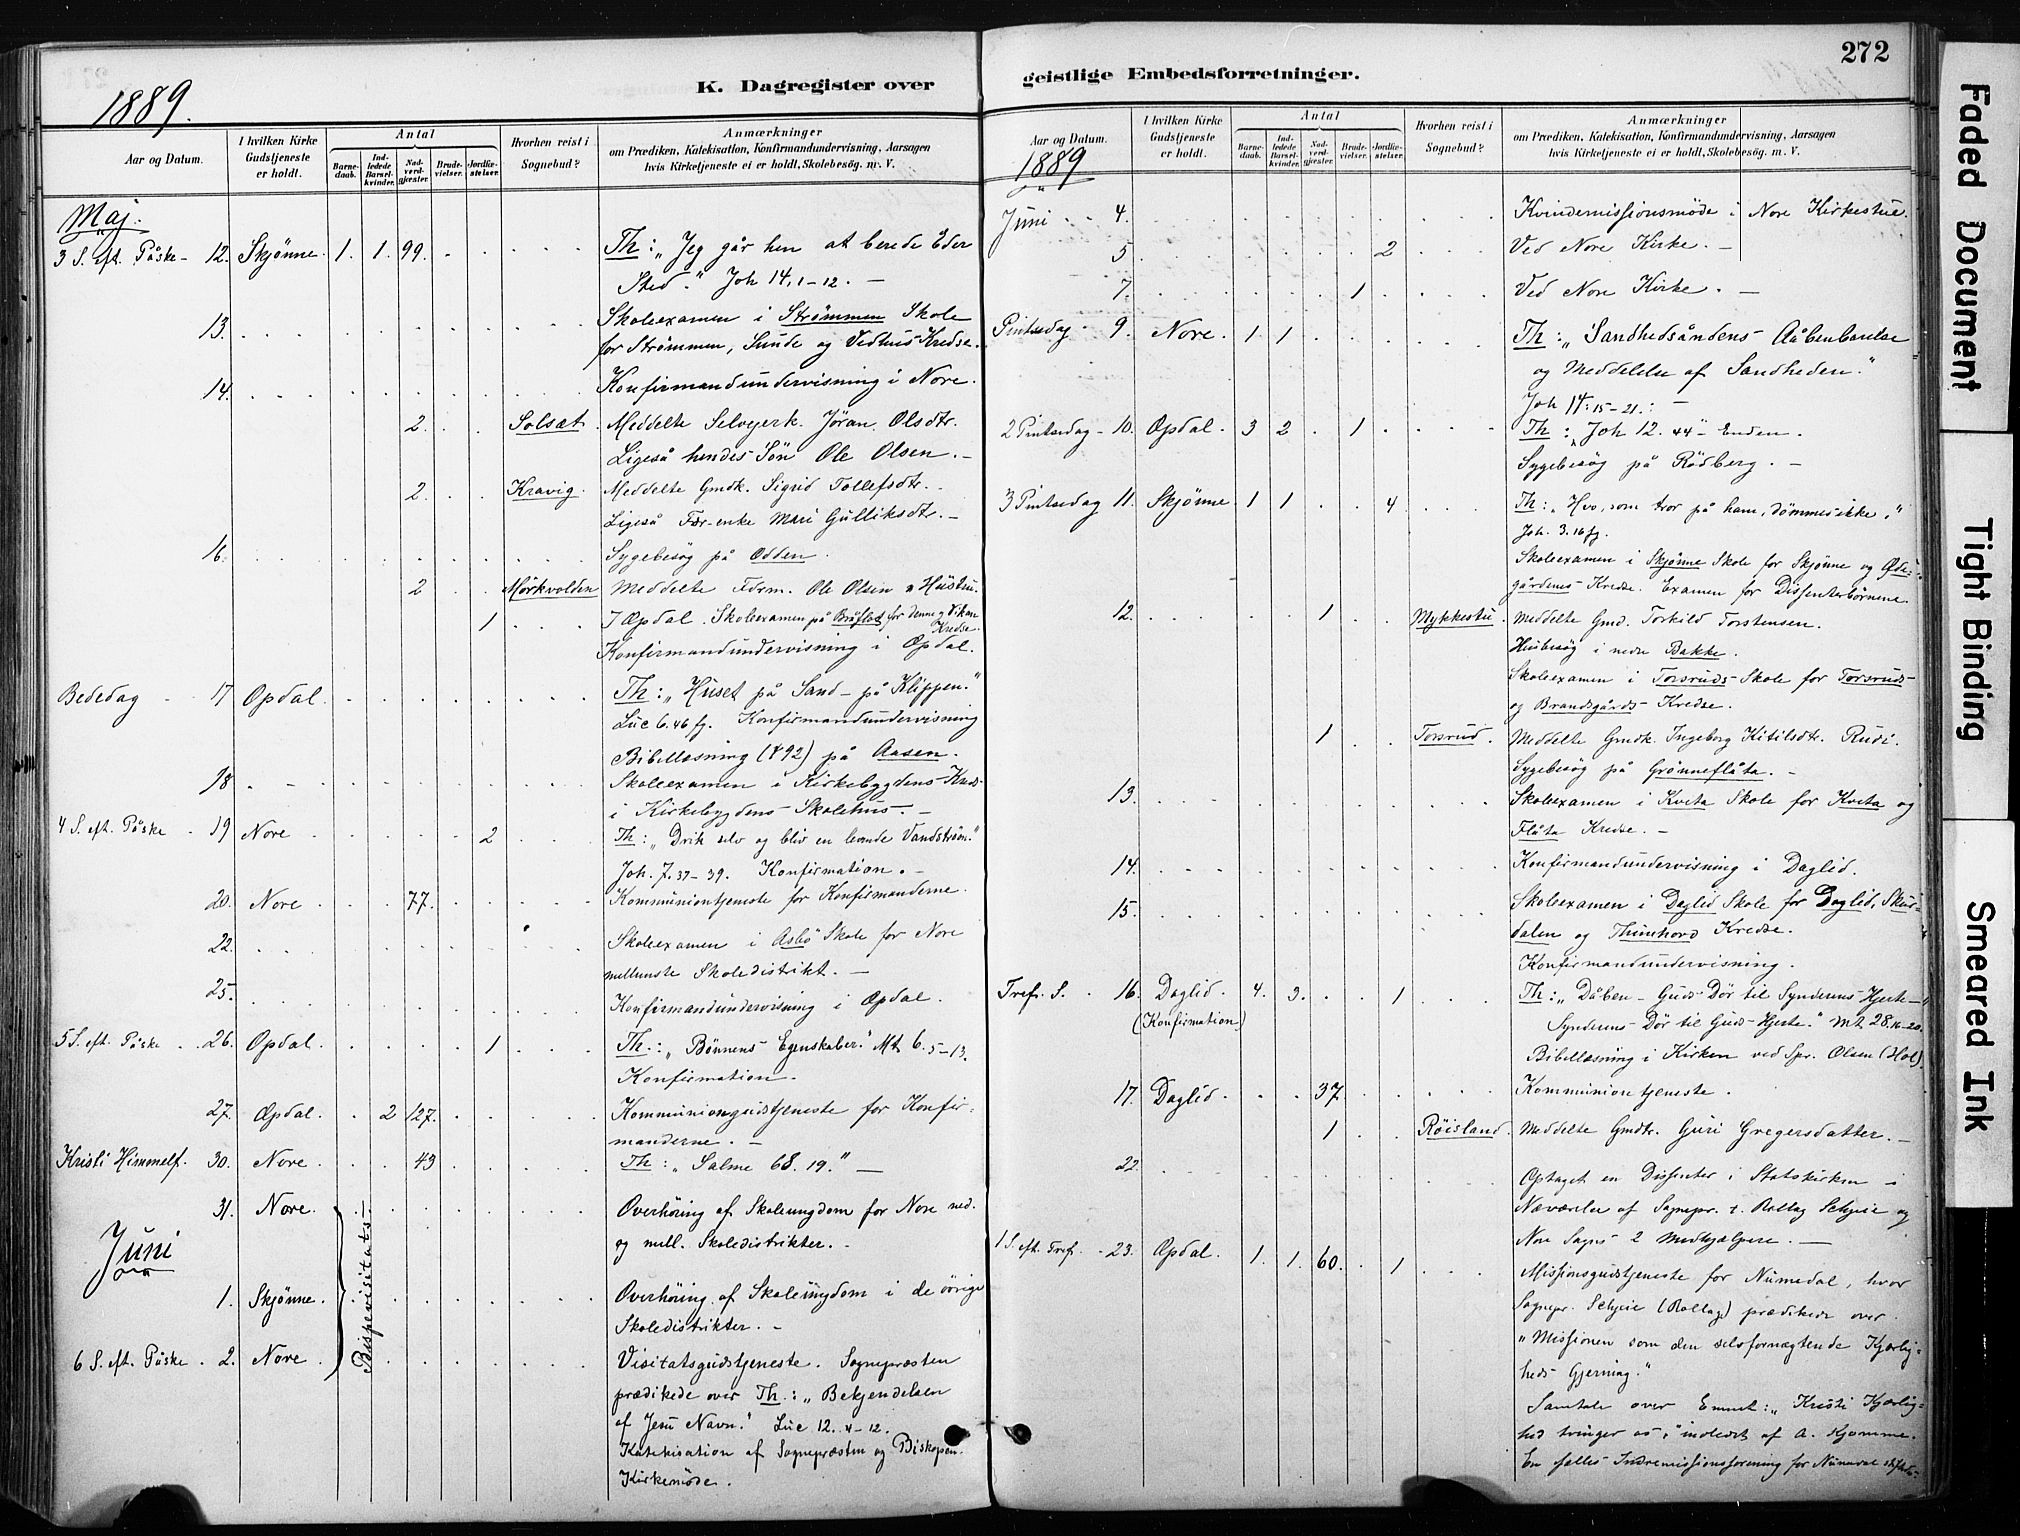 272
K. Dagregister over
geistlige Embedsforretninger.
1889.
Aar og Datum.
I hvilken Kirke Gudstjeneste er holdt.
Antal
Barnedaab.
Indledede Barselkvinder.
Nadverdgjester.
Brudevielser.
Jordfæstelser.
Hvorhen reist i Sognebud?
Anmærkninger
om Prædiken, Katekisation, Konfirmandundervisning, Aarsagen
hvis Kirketjeneste ei er holdt, Skolebesög. m. V.
Maj.
3 S. eft. Påske - 12. Skjønne. 1. 1. 99. Th: „Jeg går hen at berede Eder
Sted." Joh 14, 1-12. -
13. Skoleexamen i Strømmen Skole
for Strømmen, Sunde og Vedhus Kredse.
14. Konfirmandundervisning i Nore.
2. Solsæt. Meddelte Selvejerk. Jøran Olsdtr.
Ligeså hendes Søn Ole Olsen. -
2. Kravig. Meddelte Gmdk. Sigrid Tollefsdtr. -
Ligeså Fær-enke Mari Gulliksdtr. -
16. Sygebesøg på Odden.
2 Mørkvolden Meddelte Fdrm. Ole Olsen " Hustru.
1 I Opdal. Skoleexamen på Bråflat for denne og Vikan
Kredse.
Konfirmandundervisning i Opdal.
Bededag - 17 Opdal. Th: „Huset på Sand - på Klippen."
Luc 6. 46 fg. Konfirmandundervisning
Bibellæsning (Ψ92) på Aasen.
18. Skoleexamen i Kirkebygdens Kreds
i Kirkebygdens Skolehus. -
4 S. eft. Påske - 19 Nore. 2 Th: „Drik selv og bliv en levende Vandstrøm."
Joh. 7. 37-39. Konfirmation. -
20. Nore. 77. Kommuniontjeneste for Konfirmanderne.
22. Skoleexamen i Åsbø Skole for Nore
mellemste Skoledistrikt. -
25. Konfirmandundervisning i Opdal.
5 S. eft. Påske - 26. Opdal. 1 Th: „Bønnens Egenskaber." Mt 6. 5-13.
Konfirmation. -
27. Opdal. 2 127. Kommuniongudstjeneste for Konfir-
manderne. -
Kristi Himmelf. 30. Nore. 43 Th: „Salme 68. 19." -
31. Nore. Overhøring af Skoleungdom for Nore ned.
og mell. Skoledistrikter. -
Bispevisitats:-
Juni
1. Skjønne. Overhøring af Skoleungdom i de øvrige
Skoledistrikter. -
6 S. eft. Påske - 2. Nore. Visitatsgudstjeneste. Sognepræsten
prædikede over Th: „Bekjendelsen
af Jesu Navn." Luc 12. 4-12.
Katekisation af Sognepræsten og Biskopen.
Kirkemøde.
Aar og Datum.
1889
I hvilken Kirke Gudstjeneste er holdt.
Antal
Barnedaab.
Indledede Barselkvinder.
Nadverdgjester.
Brudevielser.
Jordfæstelser.
Hvorhen reist i Sognebud?
Anmærkninger
om Prædiken, Katekisation, Konfirmandundervisning, Aarsagen
hvis Kirketjeneste ei er holdt, Skolebesög. m. V.
Juni - 4. Kvindemissionsmøde i Nore Kirkestue.
5. 2 Ved Nore Kirke. -
7. 1 Ved Nore Kirke. -
Pintsedag - 9. Nore. 1 1 Th: „Sandhedsåndens Aabenbarelse
og Meddelelse af Sandheden."
Joh 14: 15-21. -
2 Pintsedag - 10. Opdal. 3 2 1 Th: „Joh 12. 44 - Enden.
Sygebesøg på Rødberg. -
3 Pintsedag 11. Skjønne. 1 1 4 Th: „Hvo, som tror på ham, dømmes ikke."
Joh. 3. 16 fg.
Skoleexamen i Skjønne Skole for Skjønne og Øde-
gårdenes Kredse. Examen for Dissenterbørnene.
12. 1 Mykkestu. Meddelte Gmd. Torkild Torstensen.
Husbesøg i nedre Bakke.
Skoleexamen i Torsruds Skole for Torsruds-
og Brandsgårds Kredse.
1 Torsrud. Meddelte Gmdk. Ingeborg Kitilsdtr. Rudi.
Sygebesøg på Grønneflåta. -
13. Skoleexamen i Kvita Skole for Kvita og
Flåta Kredse. -
14. Konfirmandundervisning i Daglid.
15. Skoleexamen i Daglid Skole for Daglid, Skur-
dalen og Thunhovd Kredse.
Konfirmandundervisning.
Tref. S. - 16. Daglid. 4. 3. 1 Th: „Dåben - Guds Dør til Synderens Hjerte -"
(Konfirmation) Synderens Dør til Guds Hjerte." Mt 28. 16-20.
Bibellæsning i Kirken ved Spr. Olsen (Hol).
17. Daglid. 37. Kommuniontjeneste.
1 Røisland. Meddelte Gmdtr. Guri Gregersdatter. -
22. Optaget en Dissenter i Statskirken i
Nærværelse af Sognepr. t. Rollag Schjeie og
Nore Sogns 2 Medhjælpere. -
1 S. eft. Tref. - 23. Opdal. 1. 1. 60. 1 Missionsgudstjeneste for Numedal, hvor
Sognepr. Schjeie (Rollag) prædikede over
„Missionen som den selvfornægtende Kjærlig-
heds Gjerning."
Samtale over Emnet: „Kristi Kjærlig-
hed tvinger os," indledet af A. Kjomme.
En fælles Indremissionsforening for Numedal
Faded Document
Tight Binding
Smeared Ink